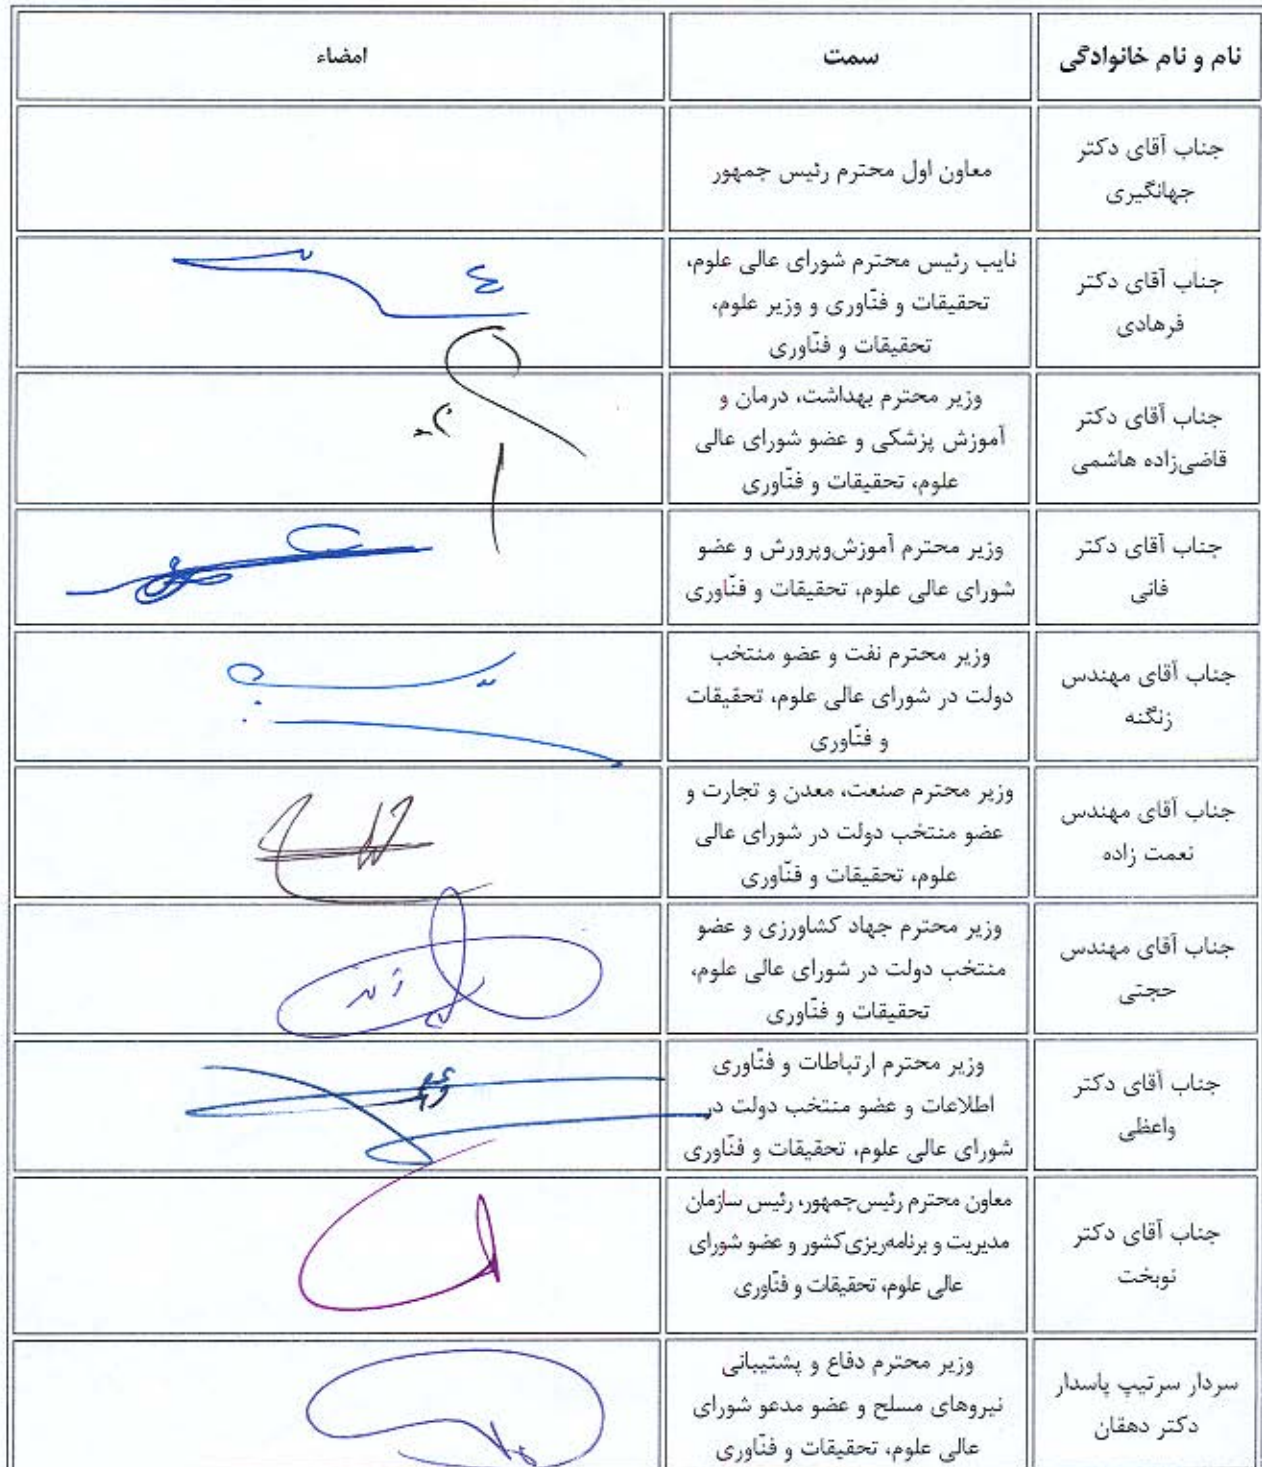 نام و نام خانوادگی
سمت
امضاء
جناب آقای دکتر
جهانگیری
معاون اول محترم رئیس جمهور
جناب آقای دکتر
فرهادی
نایب رئیس محترم شورای عالی علوم،
تحقیقات و فنّاوری و وزیر علوم،
تحقیقات و فنّاوری
جناب آقای دکتر
قاضی‌زاده هاشمی
وزیر محترم بهداشت، درمان و
آموزش پزشکی و عضو شورای عالی
علوم، تحقیقات و فنّاوری
جناب آقای دکتر
فانی
وزیر محترم آموزش‌وپرورش و عضو
شورای عالی علوم، تحقیقات و فنّاوری
جناب آقای مهندس
زنگنه
وزیر محترم نفت و عضو منتخب
دولت در شورای عالی علوم، تحقیقات
و فنّاوری
جناب آقای مهندس
نعمت زاده
وزیر محترم صنعت، معدن و تجارت و
عضو منتخب دولت در شورای عالی
علوم، تحقیقات و فنّاوری
جناب آقای مهندس
حجتی
وزیر محترم جهاد کشاورزی و عضو
منتخب دولت در شورای عالی علوم،
تحقیقات و فنّاوری
جناب آقای دکتر
واعظی
وزیر محترم ارتباطات و فنّاوری
اطلاعات و عضو منتخب دولت در
شورای عالی علوم، تحقیقات و فنّاوری
جناب آقای دکتر
نوبخت
معاون محترم رئیس‌جمهور، رئیس سازمان
مدیریت و برنامه‌ریزی کشور و عضو شورای
عالی علوم، تحقیقات و فنّاوری
سردار سرتیپ پاسدار
دکتر دهقان
وزیر محترم دفاع و پشتیبانی
نیروهای مسلح و عضو مدعو شورای
عالی علوم، تحقیقات و فنّاوری